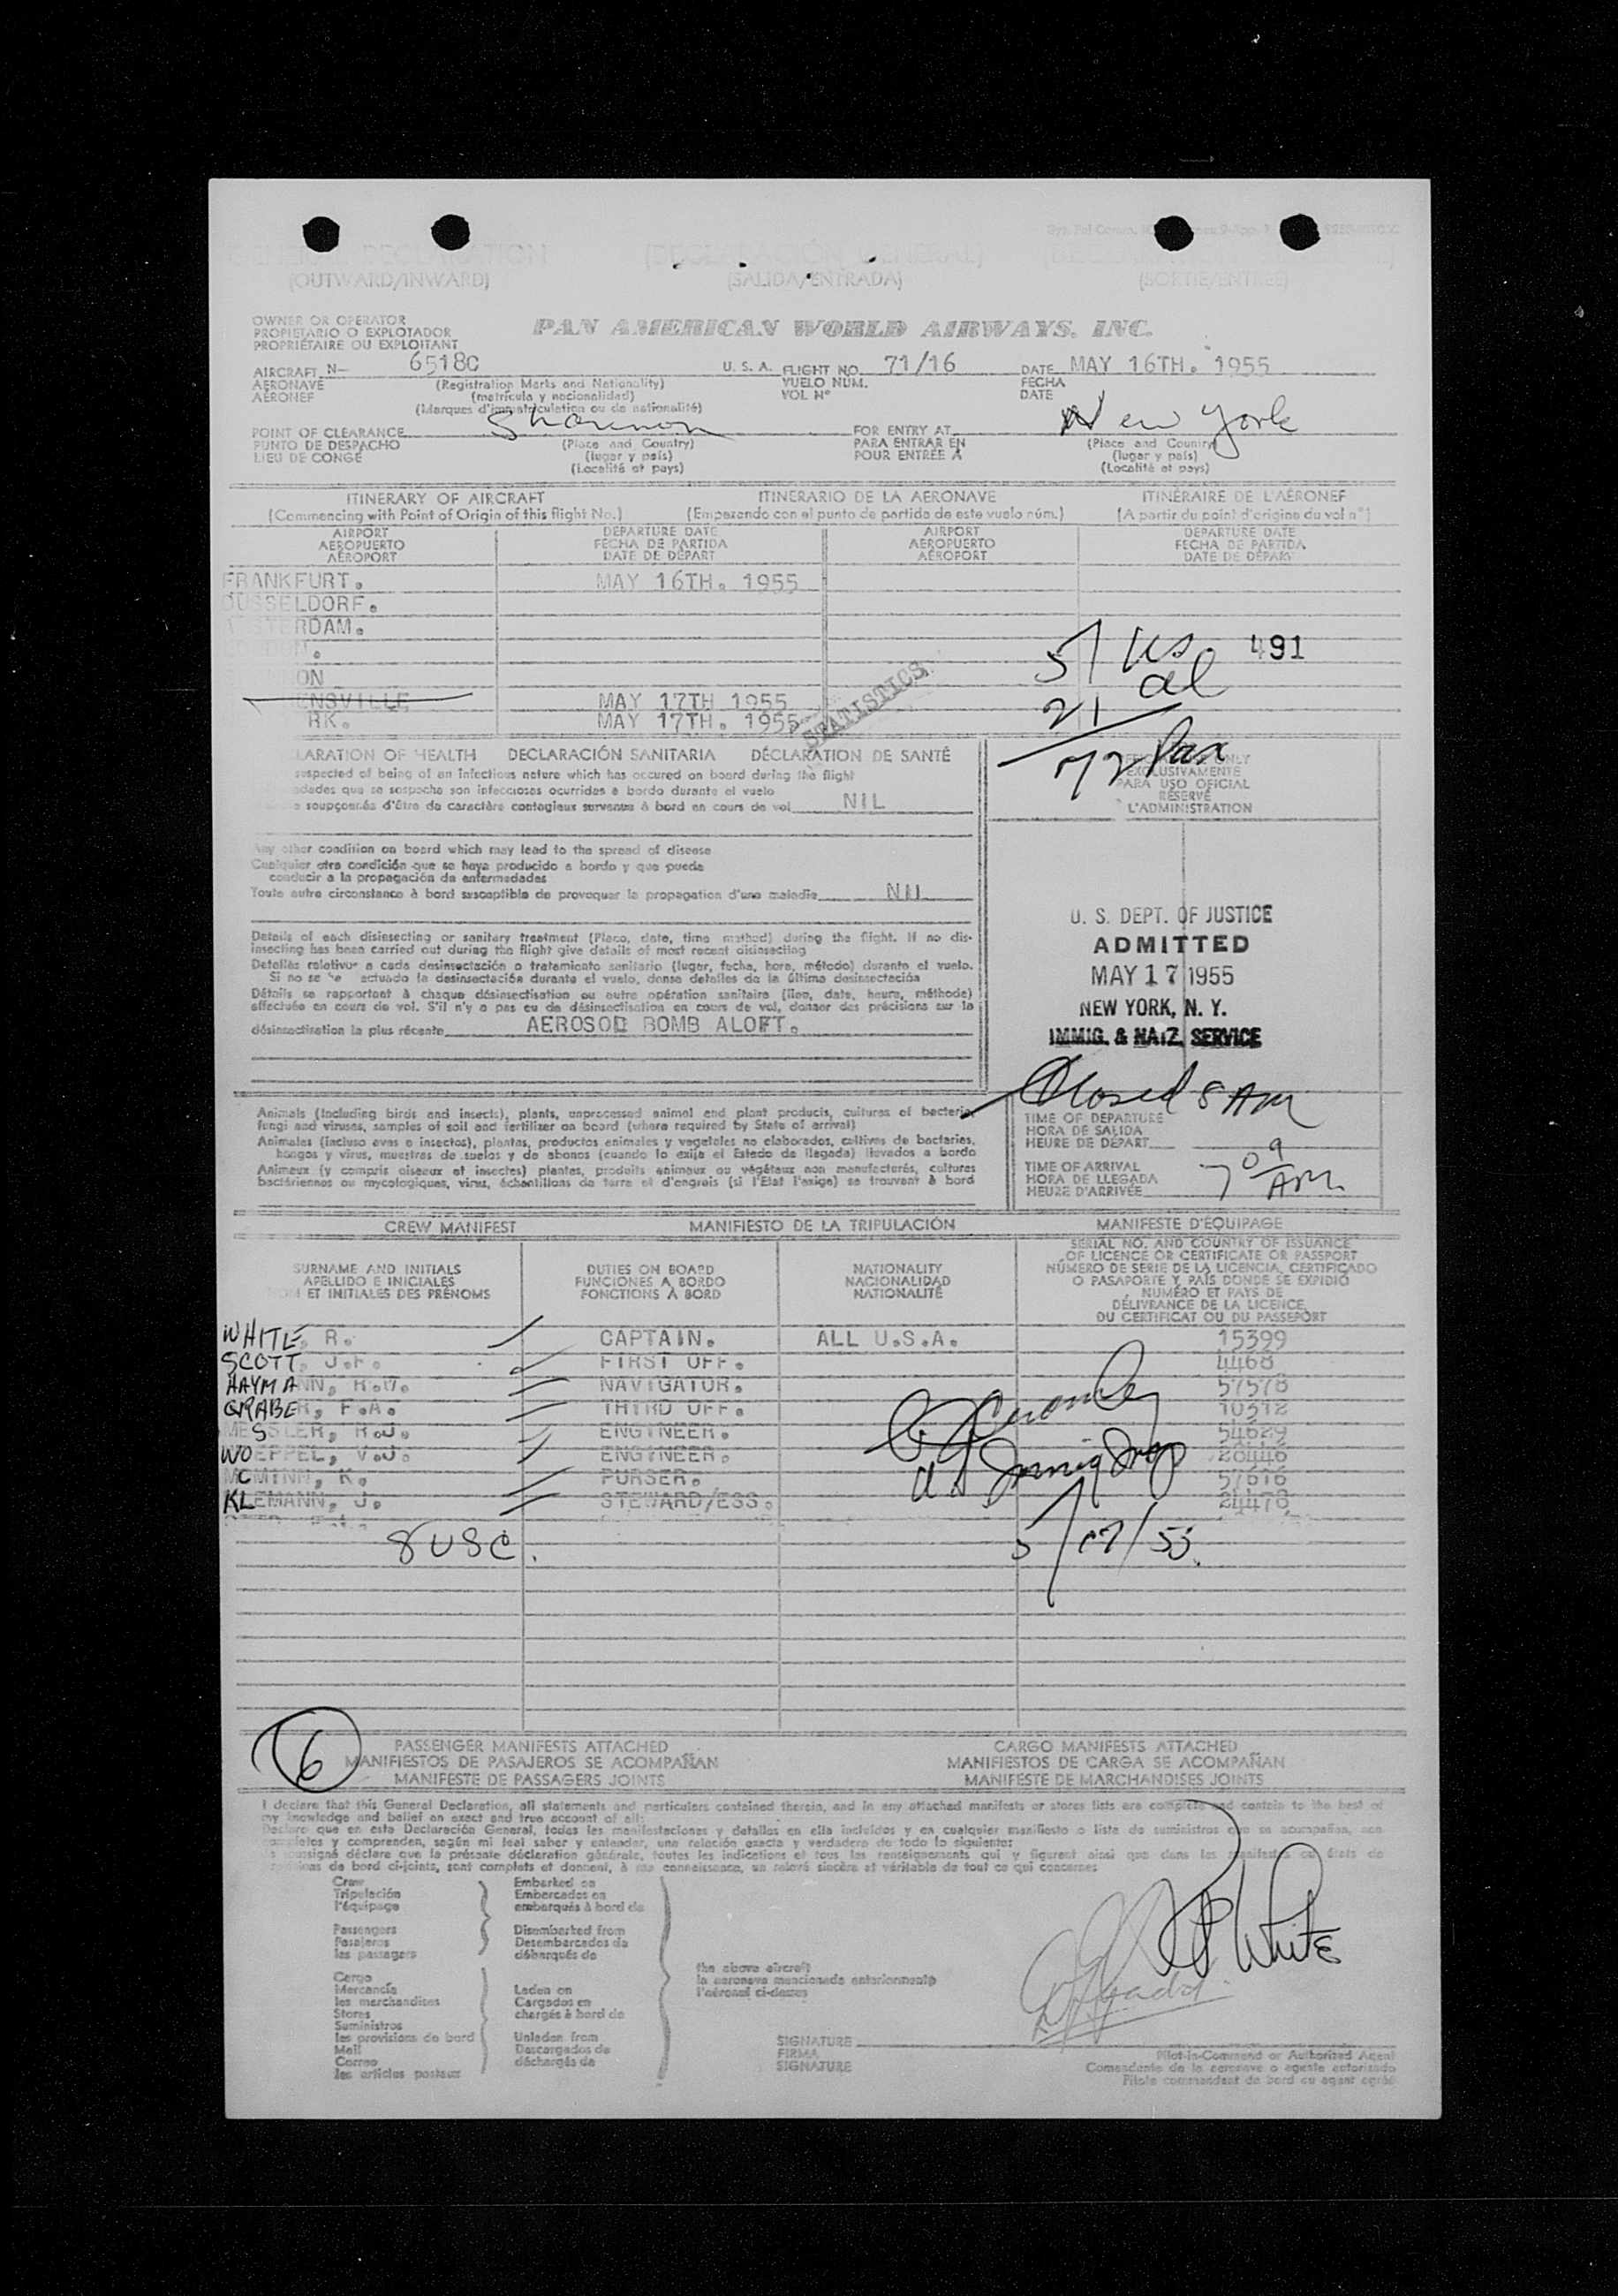 (OUTWARD/INWARD) (SALIDA/ENTRADA) (SORTIE/ENTRÉE)
OWNER OR OPERATOR
PROPIETARIO O EXPLOTADOR
PROPRIÉTAIRE OU EXPLOITANT
PAN AMERICAN WORLD AIRWAYS, INC.
AIRCRAFT N- 6518C U. S. A. FLIGHT NO. 71/16 DATE MAY 16TH. 1955
AERONAVE (Registration Marks and Nationality) VUELO NÚM. FECHA
AÉRONEF (matrícula y nacionalidad) VOL Nº DATE
(Marques d'immatriculation ou de nationalité)
POINT OF CLEARANCE Shannon FOR ENTRY AT New York
PUNTO DE DESPACHO (Place and Country) PARA ENTRAR EN (Place and Country)
LIEU DE CONGÉ (lugar y país) POUR ENTRÉE À (lugar y país)
(Localité et pays) (Localité et pays)
ITINERARY OF AIRCRAFT ITINERARIO DE LA AERONAVE ITINÉRAIRE DE L'AÉRONEF
(Commencing with Point of Origin of this flight No.) (Empezando con el punto de partida de este vuelo núm.) (A partir du point d'origine du vol nº)
AIRPORT DEPARTURE DATE AIRPORT DEPARTURE DATE
AEROPUERTO FECHA DE PARTIDA AEROPUERTO FECHA DE PARTIDA
AÉROPORT DATE DE DÉPART AÉROPORT DATE DE DÉPART
FRANKFURT. MAY 16TH. 1955
DUSSELDORF.
RDAM.
51 US 491
ON
21 al
ENSVILLE MAY 17TH 1955
RK. MAY 17TH. 1955
STATISTICS
72 Pax
LARATION OF HEALTH DECLARACIÓN SANITARIA DÉCLARATION DE SANTÉ
suspected of being of an infectious nature which has occured on board during the flight
edades que se sospecha son infecciosas ocurridas a bordo durante el vuelo
soupçonnés d'être de caractère contagieux survenus à bord en cours de vol NIL
NLY
EXCLUSIVAMENTE
PARA USO OFICIAL
RÉSERVÉ
L'ADMINISTRATION
Any other condition on board which may lead to the spread of disease
Cualquier otra condición que se haya producido a bordo y que pueda
conducir a la propagación de enfermedades
Toute autre circonstance à bord susceptible de provoquer la propagation d'une maladie NIL
Details of each disinsecting or sanitary treatment (Place, date, time method) during the flight. If no dis-
insecting has been carried out during the flight give details of most recent disinsecting
Detalles relativos a cada desinsectación o tratamiento sanitario (lugar, fecha, hora, método) durante el vuelo.
Si no se ha actuado la desinsectación durante el vuelo, dense detalles de la última desinsectación
Détails se rapportant à chaque désinsectisation ou autre opération sanitaire (lieu, date, heure, méthode)
effectuée en cours de vol. S'il n'y a pas eu de désinsectisation en cours de vol, donner des précisions sur la
désinsectisation la plus récente AEROSOL BOMB ALOFT.
U. S. DEPT. OF JUSTICE
ADMITTED
MAY 17 1955
NEW YORK, N. Y.
IMMIG. & NATZ. SERVICE
Closed 8 AM
Animals (including birds and insects), plants, unprocessed animal and plant products, cultures of bacteria,
fungi and viruses, samples of soil and fertilizer on board (where required by State of arrival)
Animales (incluso aves e insectos), plantas, productos animales y vegetales no elaborados, cultivos de bacterias,
hongos y virus, muestras de suelos y de abonos (cuando lo exija el Estado de llegada) llevados a bordo
Animaux (y compris oiseaux et insectes) plantes, produits animaux ou végétaux non manufacturés, cultures
bactériennes ou mycologiques, virus, échantillons de terre et d'engrais (si l'État l'exige) se trouvant à bord
TIME OF DEPARTURE
HORA DE SALIDA
HEURE DE DÉPART
TIME OF ARRIVAL
HORA DE LLEGADA
HEURE D'ARRIVÉE 7 09 AM
CREW MANIFEST MANIFIESTO DE LA TRIPULACIÓN MANIFESTE D'ÉQUIPAGE
SURNAME AND INITIALS
APELLIDO E INICIALES
ET INITIALES DES PRÉNOMS
DUTIES ON BOARD
FUNCIONES A BORDO
FONCTIONS À BORD
NATIONALITY
NACIONALIDAD
NATIONALITÉ
SERIAL NO. AND COUNTRY OF ISSUANCE
OF LICENCE OR CERTIFICATE OR PASSPORT
NÚMERO DE SERIE DE LA LICENCIA, CERTIFICADO
O PASAPORTE Y PAÍS DONDE SE EXPIDIÓ
NUMÉRO ET PAYS DE
DÉLIVRANCE DE LA LICENCE,
DU CERTIFICAT OU DU PASSEPORT
WHITE, R. CAPTAIN. ALL U.S.A. 15399
SCOTT, J.F. FIRST OFF. 4468
HAYMANN, NAVIGATOR. 57578
GRABER, F.A. THIRD OFF. 10312
MESSLER, R.J. ENGINEER. 54629
WOEPPEL, V.J. ENGINEER. 20446
MCMINN, K. PURSER. 57616
KLEMANN, J. STEWARD/ESS.
8 USC.
U S Immig Insp
5/17/55.
6
PASSENGER MANIFESTS ATTACHED CARGO MANIFESTS ATTACHED
MANIFIESTOS DE PASAJEROS SE ACOMPAÑAN MANIFIESTOS DE CARGA SE ACOMPAÑAN
MANIFESTE DE PASSAGERS JOINTS MANIFESTE DE MARCHANDISES JOINTS
I declare that this General Declaration, all statements and particulars contained therein, and in any attached manifests or stores lists are complete and contain to the best of
my knowledge and belief an exact and true account of all:
Declaro que en esta Declaración General, todas las manifestaciones y detalles en ella incluidos y en cualquier manifiesto o lista de suministros que se acompañan, son
completos y comprenden, según mi leal saber y entender, una relación exacta y verdadera de todo lo siguiente:
soussigné déclare que la présente déclaration générale, toutes les indications et tous les renseignements qui y figurent ainsi que dans les manifestes ou états de
provisions de bord ci-joints, sont complets et donnent, à ma connaissance, un relevé sincère et véritable de tout ce qui concerne:
Crew
Tripulación
l'équipage
Passengers
Pasajeros
les passagers
Cargo
Mercancía
les marchandises
Stores
Suministros
les provisions de bord
Mail
Correo
les articles postaux
Embarked on
Embarcados en
embarqués à bord de
Disembarked from
Desembarcados de
débarqués de
Laden on
Cargados en
chargés à bord de
Unladen from
Descargados de
déchargés de
the above aircraft
la aeronave mencionada anteriormente
l'aéronef ci-dessus
R P White
SIGNATURE
FIRMA
SIGNATURE
Pilot-in-Command or Authorized Agent
Comandante de la aeronave o agente autorizado
Pilote commandant de bord ou agent agréé